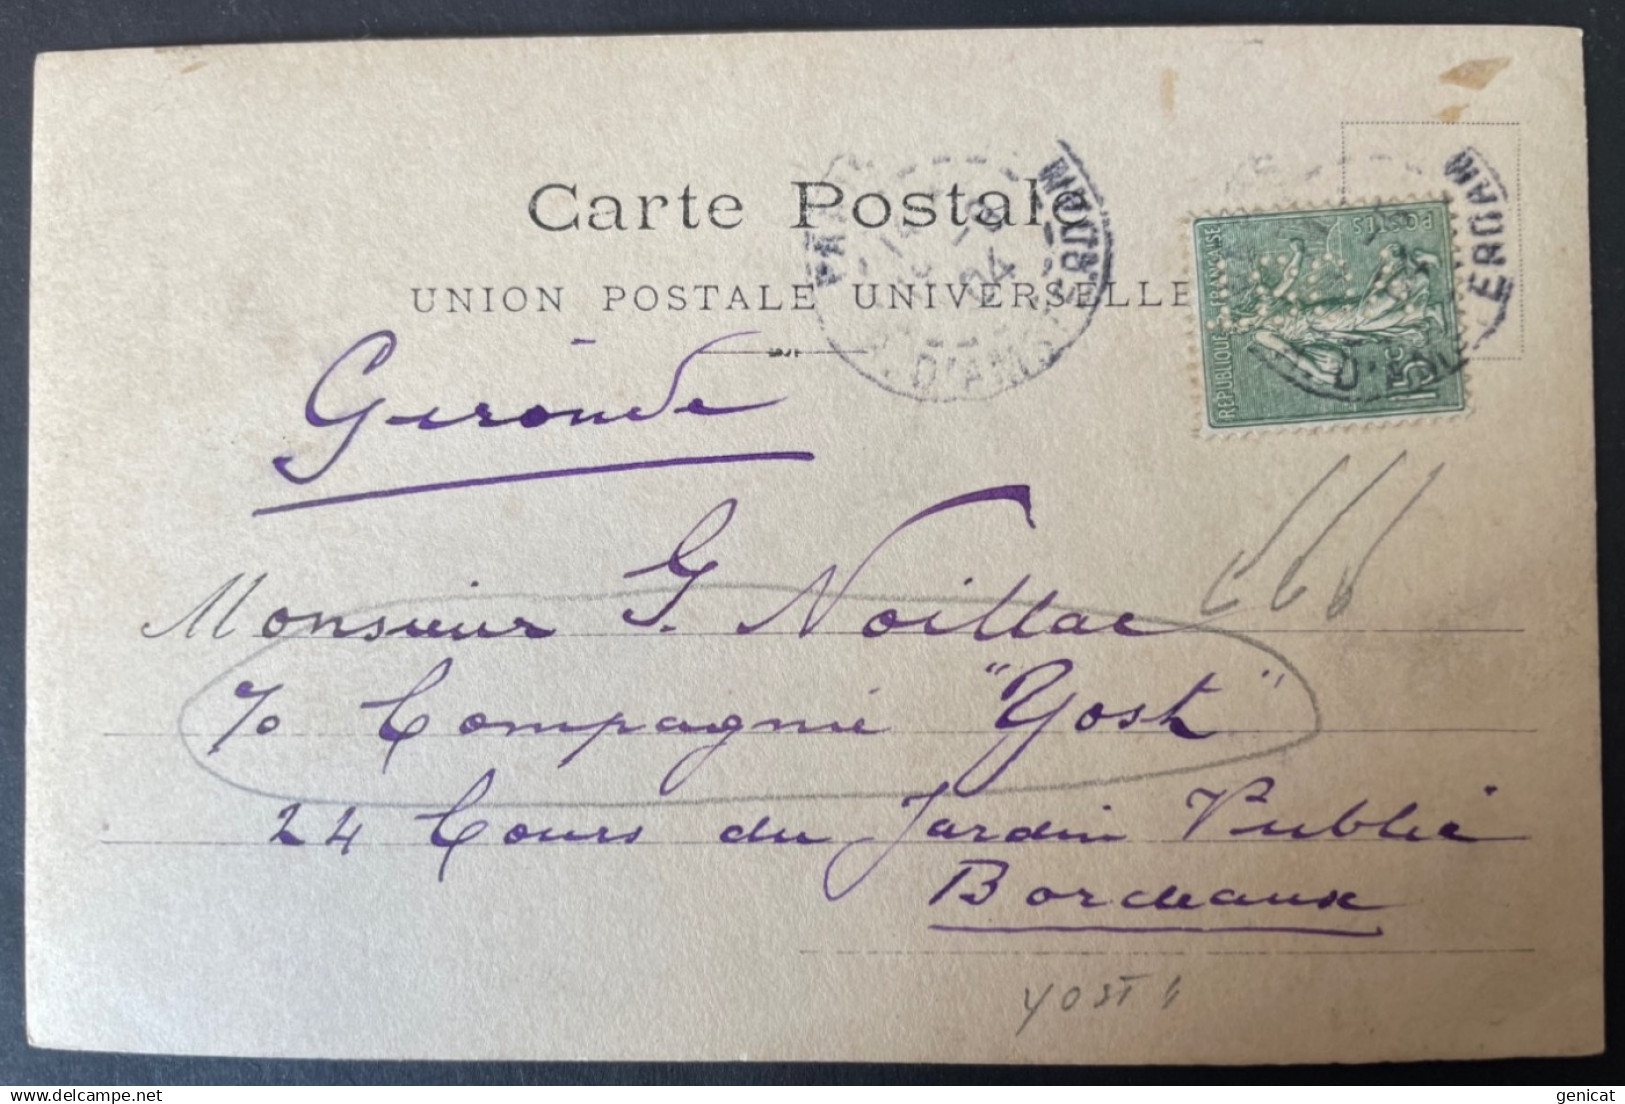 Carte Postale
UNION POSTALE UNIVERSELLE
REPUBLIQUE FRANÇAISE
POSTES
15c
PARIS
R. D'AMSTERDAM
04
R. D'AMSTERDAM
Gironde
Monsieur G. Noillac
c/o Compagnie "Yost"
24 Cours du Jardin Public
Bordeaux
YOST
genicat